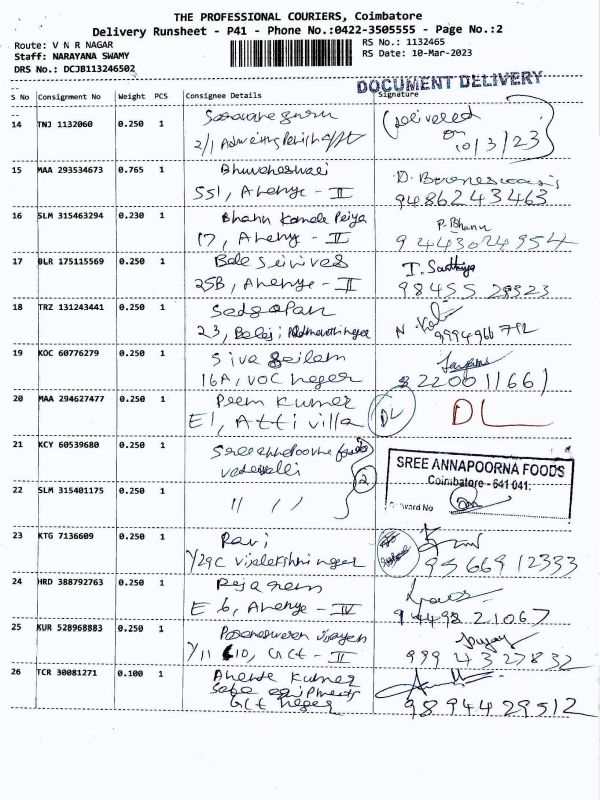 THE PROFESSIONAL COURIERS, Coimbatore
Delivery Runsheet - P41 - Phone No.:0422-3505555 - Page No.:2
Route: V N R NAGAR
Staff: NARAYANA SWAMY
DRS No.: DCJB113246502
RS No.: 1132465
RS Date: 10-Mar-2023
DOCUMENT DELIVERY
S No Consignment No Weight PCS Consignee Details Signature
14 TNJ 1132060 0.250 1
delivered on 10/3/23
15 MAA 293534673 0.765 1 Bhuvaneswari
551, Avenye - II
9486243463
16 SLM 315463294 0.230 1 Bhanu Kamala Priya P. Bhanu
17, Aveny - II 9443024954
17 BLR 175115569 0.250 1
25B, Avenye - II 98455 28523
18 TRZ 131243441 0.250 1 Sadgopan
23, Balaji 9994966792
19 KOC 60776279 0.250 1 Siva Sailam
16A, VOC nagar
20 MAA 294627477 0.250 1 Prem Kumar DL DL
E1, Atti villa
21 KCY 60539680 0.250 1 Sree Annapoorna foods
vadavalli 2
SREE ANNAPOORNA FOODS
Coimbatore - 641 041.
22 SLM 315401175 0.250 1 " "
23 KTG 7136609 0.250 1 Ravi
95669 12333
24 HRD 388792763 0.250 1 Rajaram
E 6, Avenye - IV 94498 21067
25 KUR 528968883 0.250 1
GCT - II 9994327832
26 TCR 30081271 0.100 1 Anenta Kumar
Safe eqipments
GCT nagar 9894429512